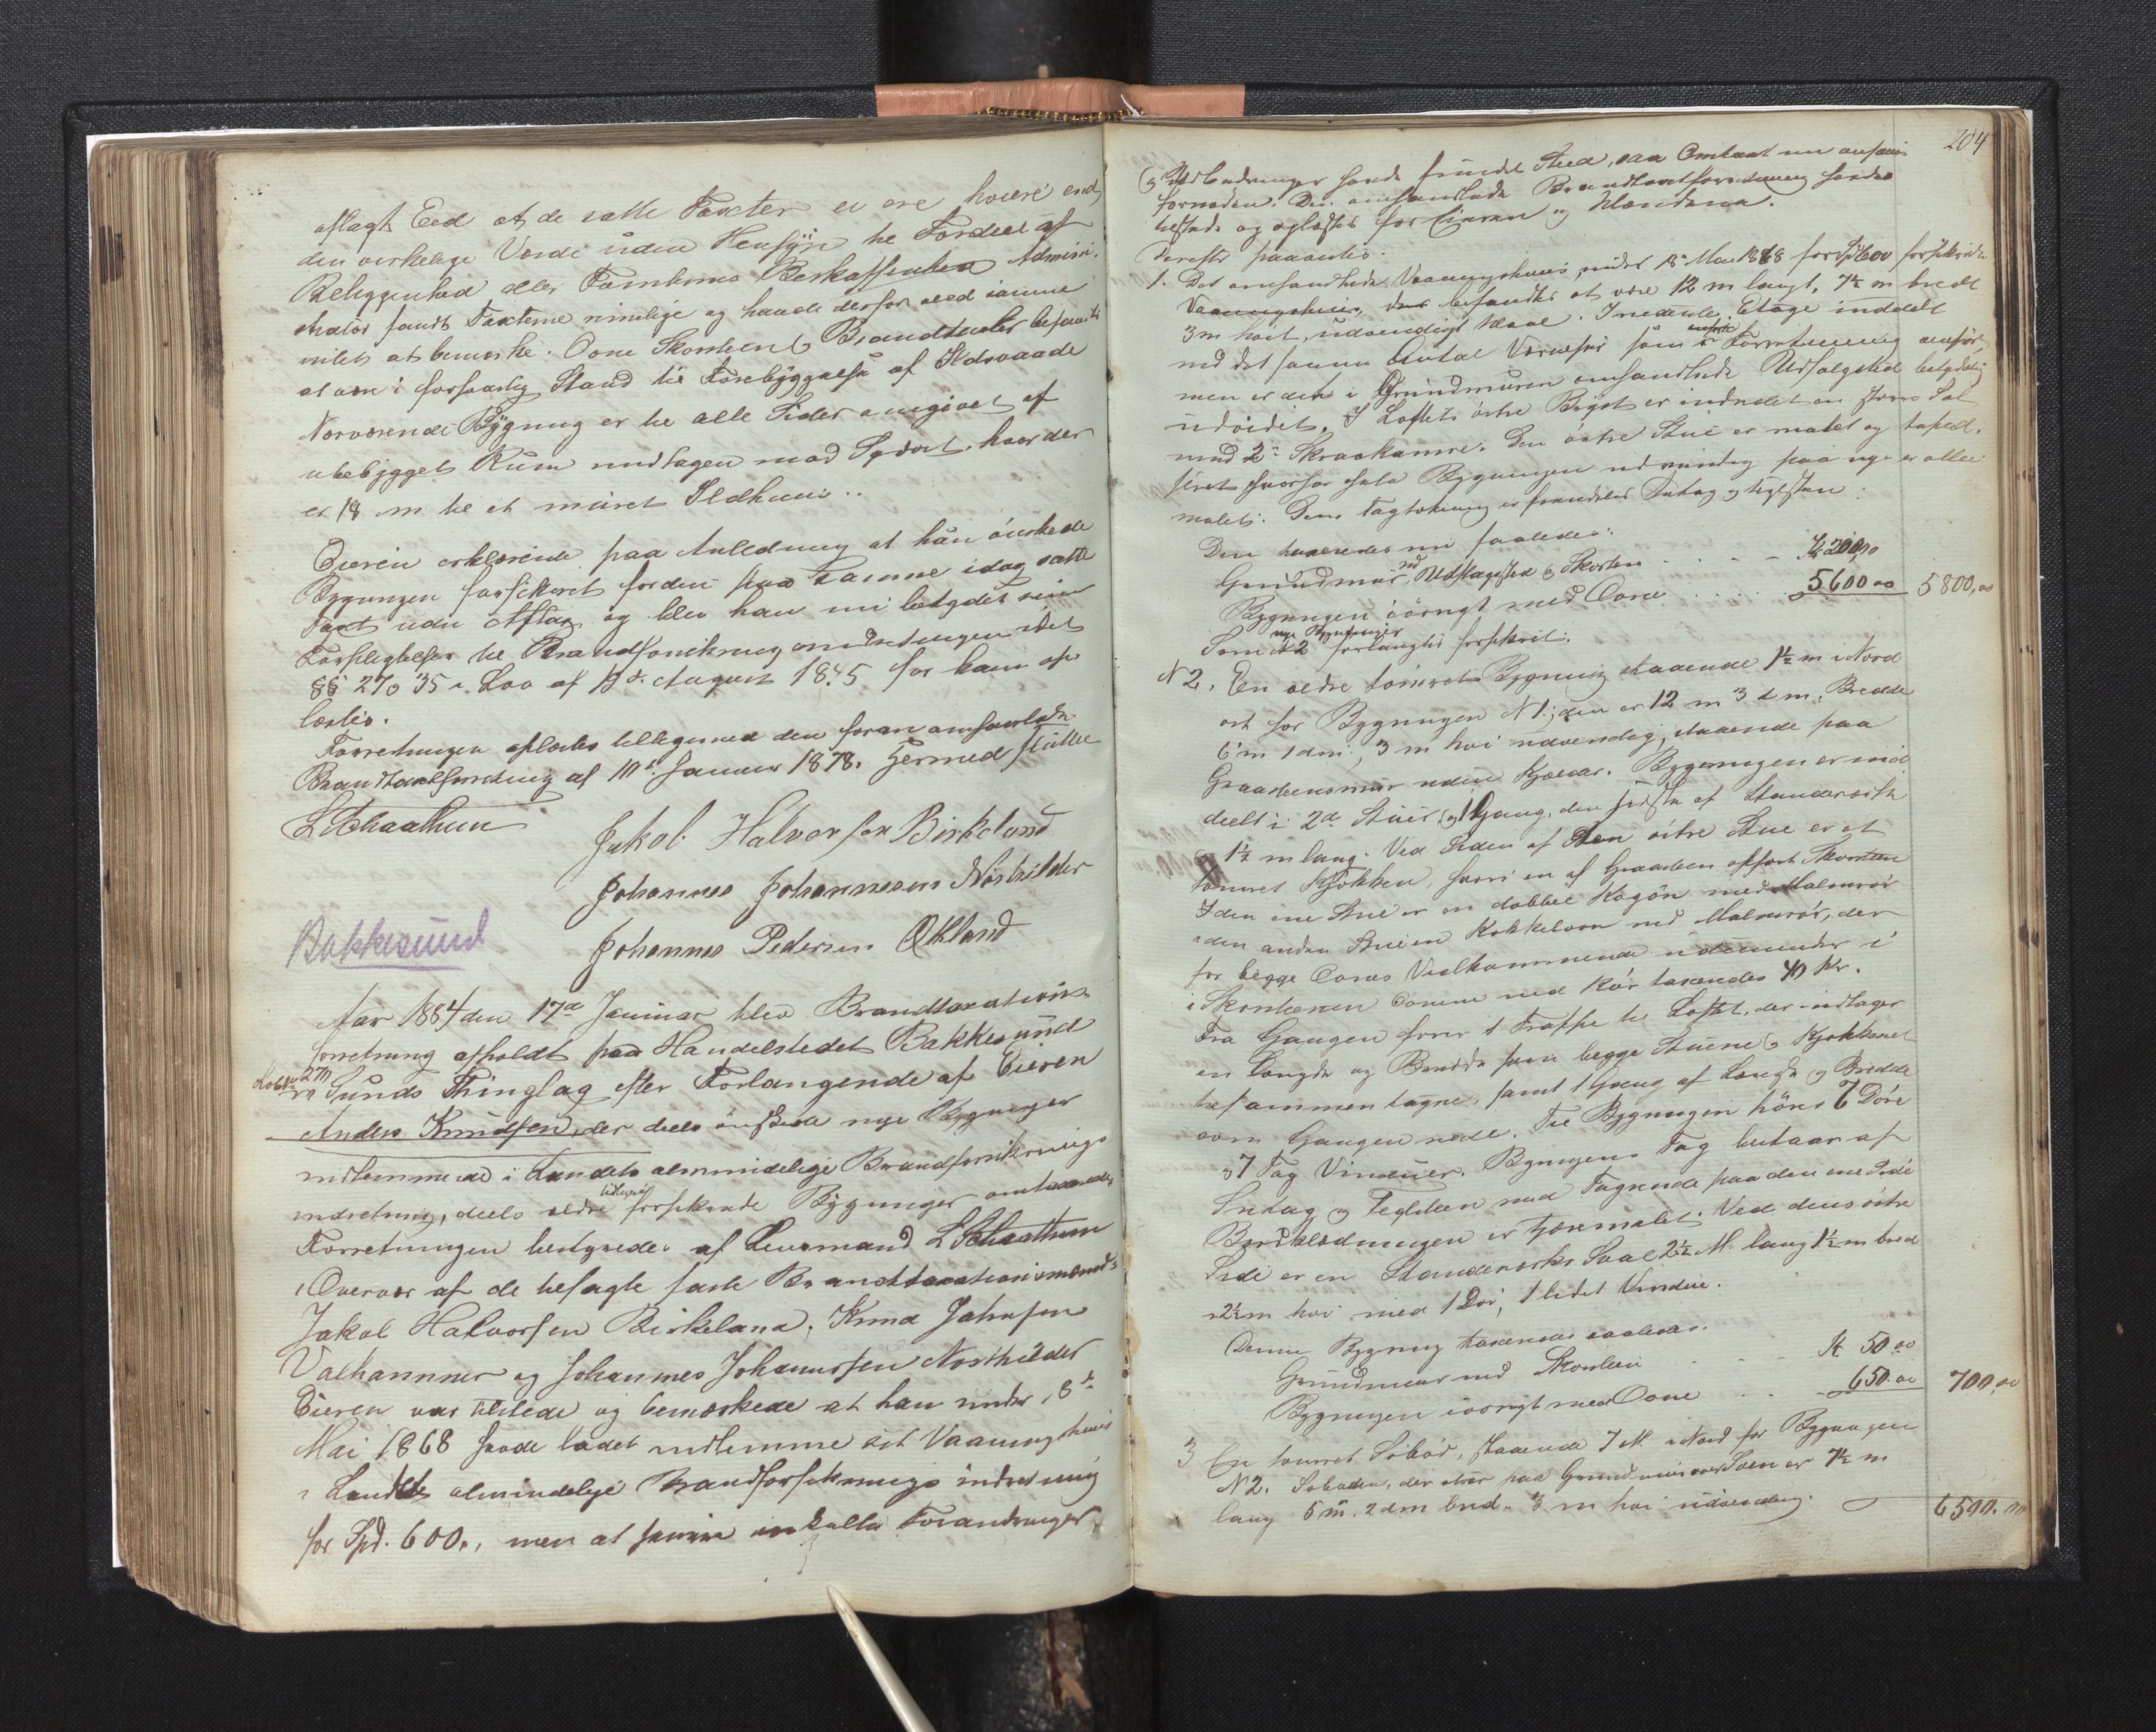 aflagt Eed at de satte Taxter ei ere høiere end
den virkelige Værdi uden Hensÿn til Fordeel af
Beliggenhed eller Tomternes Beskaffenhed. Admini-
strator fandt Taxterne rimelige og havde derfor ved samme
intet at bemærke. Ovne Skorsteen & Brandtæxter befandtes
at være i forsvarlig Stand til Forebÿggelse af Ildsvaade
Nærværende Bÿgning er til alle Sider omgivet af
ubebÿgget Rum undtagen mod Sydost, hvor der
er 18 m til et muret Ildhuus..
Eieren erklærede paa Anledning at han ønskede
Bygningen forsikeret for den paa samme idag satte
Taxt uden Afslag og blev han nu betydet sine
Forpligtelser til Brandforsikringsindretningen idet
§§ 27 & 35 i Lov af 19de August 1845 for ham op
læstes.
Forretningen oplæstes tilligemed den foran omhandlede
Brandtaxtforretning af 10de Januar 1878. Hermed sluttet
L Schaathun
Jakob Halvorsen Birkeland
Johannes Johannesen Nøsthilder
Johannes Pedersen Økland
Bakkesund
Aar 1884 den 17de Januar blev Brandtaxations
forretning afholdt paa Handelstedet Bakkesund
Sunds Thinglag efter Forlangende af Eieren
Anders Knudsen, der deels ønskede nye Bygninger
indlemmede i Landets almindelige Brandforsikrings
indretning, deels ældre tidligere forsikrede Bygninger omtaxerede.
Forretningen bestyredes af Lensmand L Schaathun
i Overvær af de besagte faste Brandtaxationsmænd
Jakob Halvorsen Birkeland, Knud Johnsen
Valhammer og Johannes Johannesen Nøsthilder
Eieren var tilstede og bemærkede at han under 18de
Mai 1868 havde ladet indlemme sit Vaaningshuus
i Landets almindelige Brandforsikrings indretning
for Spd. 600., men at samme enkelte Forandringer
204
& Udbedringer havde fundet Sted, saa Omtaxt nu ansaaes
fornøden. Den omhandlede Brandtaxtforretning havdes
tilstede og oplæstes for Eieren og Mændene.
Derefter paavistes:
1. Det omhandlede Vaaningshuus under 18 Mai 1868 for Spd 600 forsikrede
Vaaningshuus, der befandtes at være 12 m langt, 7½ m bredt
3 m høit, udvendigt Maal. I nederste Etage inddelt
med det samme Antal Værelser som i Forretning anført
men er den i Grundmuren omhandlede Udsalgsted betydelig
udvidet. I Loftets østre Bryst er indredet en større Sal
med 2de Skraakamre. Den østre Stue er malet og tapet-
seret hvorhos hele Bygningen udvendig paa nye er oliet
malet. Dens Tagtækning er fremdeles Sutag og teglsteen.
Den taxeredes nu saaledes:
Grundmur med Udsalgssted & Skorsteen . . . Kr 200,00
Bygningen iøvrigt med Ovne . . . . 5600 00 5800,00
Som N 2 nye Bygninger forlanges forsikret:
N 2. En ældre tømret Bygning staaende 1½ m i Nord
ost for Bygningen N 1; den er 12 m 3 dm. Bredde
6 m 1 dm; 3 m høi udvendig, staaende paa
Graasteensmur uden Kjælder. Bygningen er ind
deelt i 2de Stuer & 1 Gang, den sidste af Standerværk
1½ m lang. Ved Siden af den østre Stue er et
tømret Kjøkken, hvori en af Graasteen opført Skorsteen
I den ene Stue er en dobbel Kogovn med Malmrør
i den anden Stue en Kokkelovn med Malmrør, der
for begge Ovnes Vedkommende udmunder i
i Skorstenen Ovnene med Rør taxeredes 40 Kr.
Fra Gangen fører 1 Trappe til Loftet, der indtager
en Længde og Bredde som begge Stuerne & Kjøkkenet
tilsammentagne, samt 1 Gang af Længde & Bredde
som Gangen nede. Til Bygningen hører 6 Døre
& 7 Fag Vinduer. Bygningens Tag bestaar af
Sutag & Teglsteen med Tagrende paa den ene Side
Bordklædningen er tjæremalet. Ved dens østre
Side er en Standerværks Sval 2½ M. lang 1½ m bred
2½ m høi med 1 Dør, 1 lidet Vindue.
Denne Bygning taxeredes saaledes.
Grundmuur med Skorsteen . . . Kr 50 00
Bygningen iøvrigt med Ovne . . . 650.00 700,00
3 En tømret Søbod, staaende 7 M. i Nord for Bygningen
N 2. Søboden, der staar paa Grundmuur over Søen er 7½ m
lang 5 m. 2 dm bred. 3 m høi udvendig.
6500.00